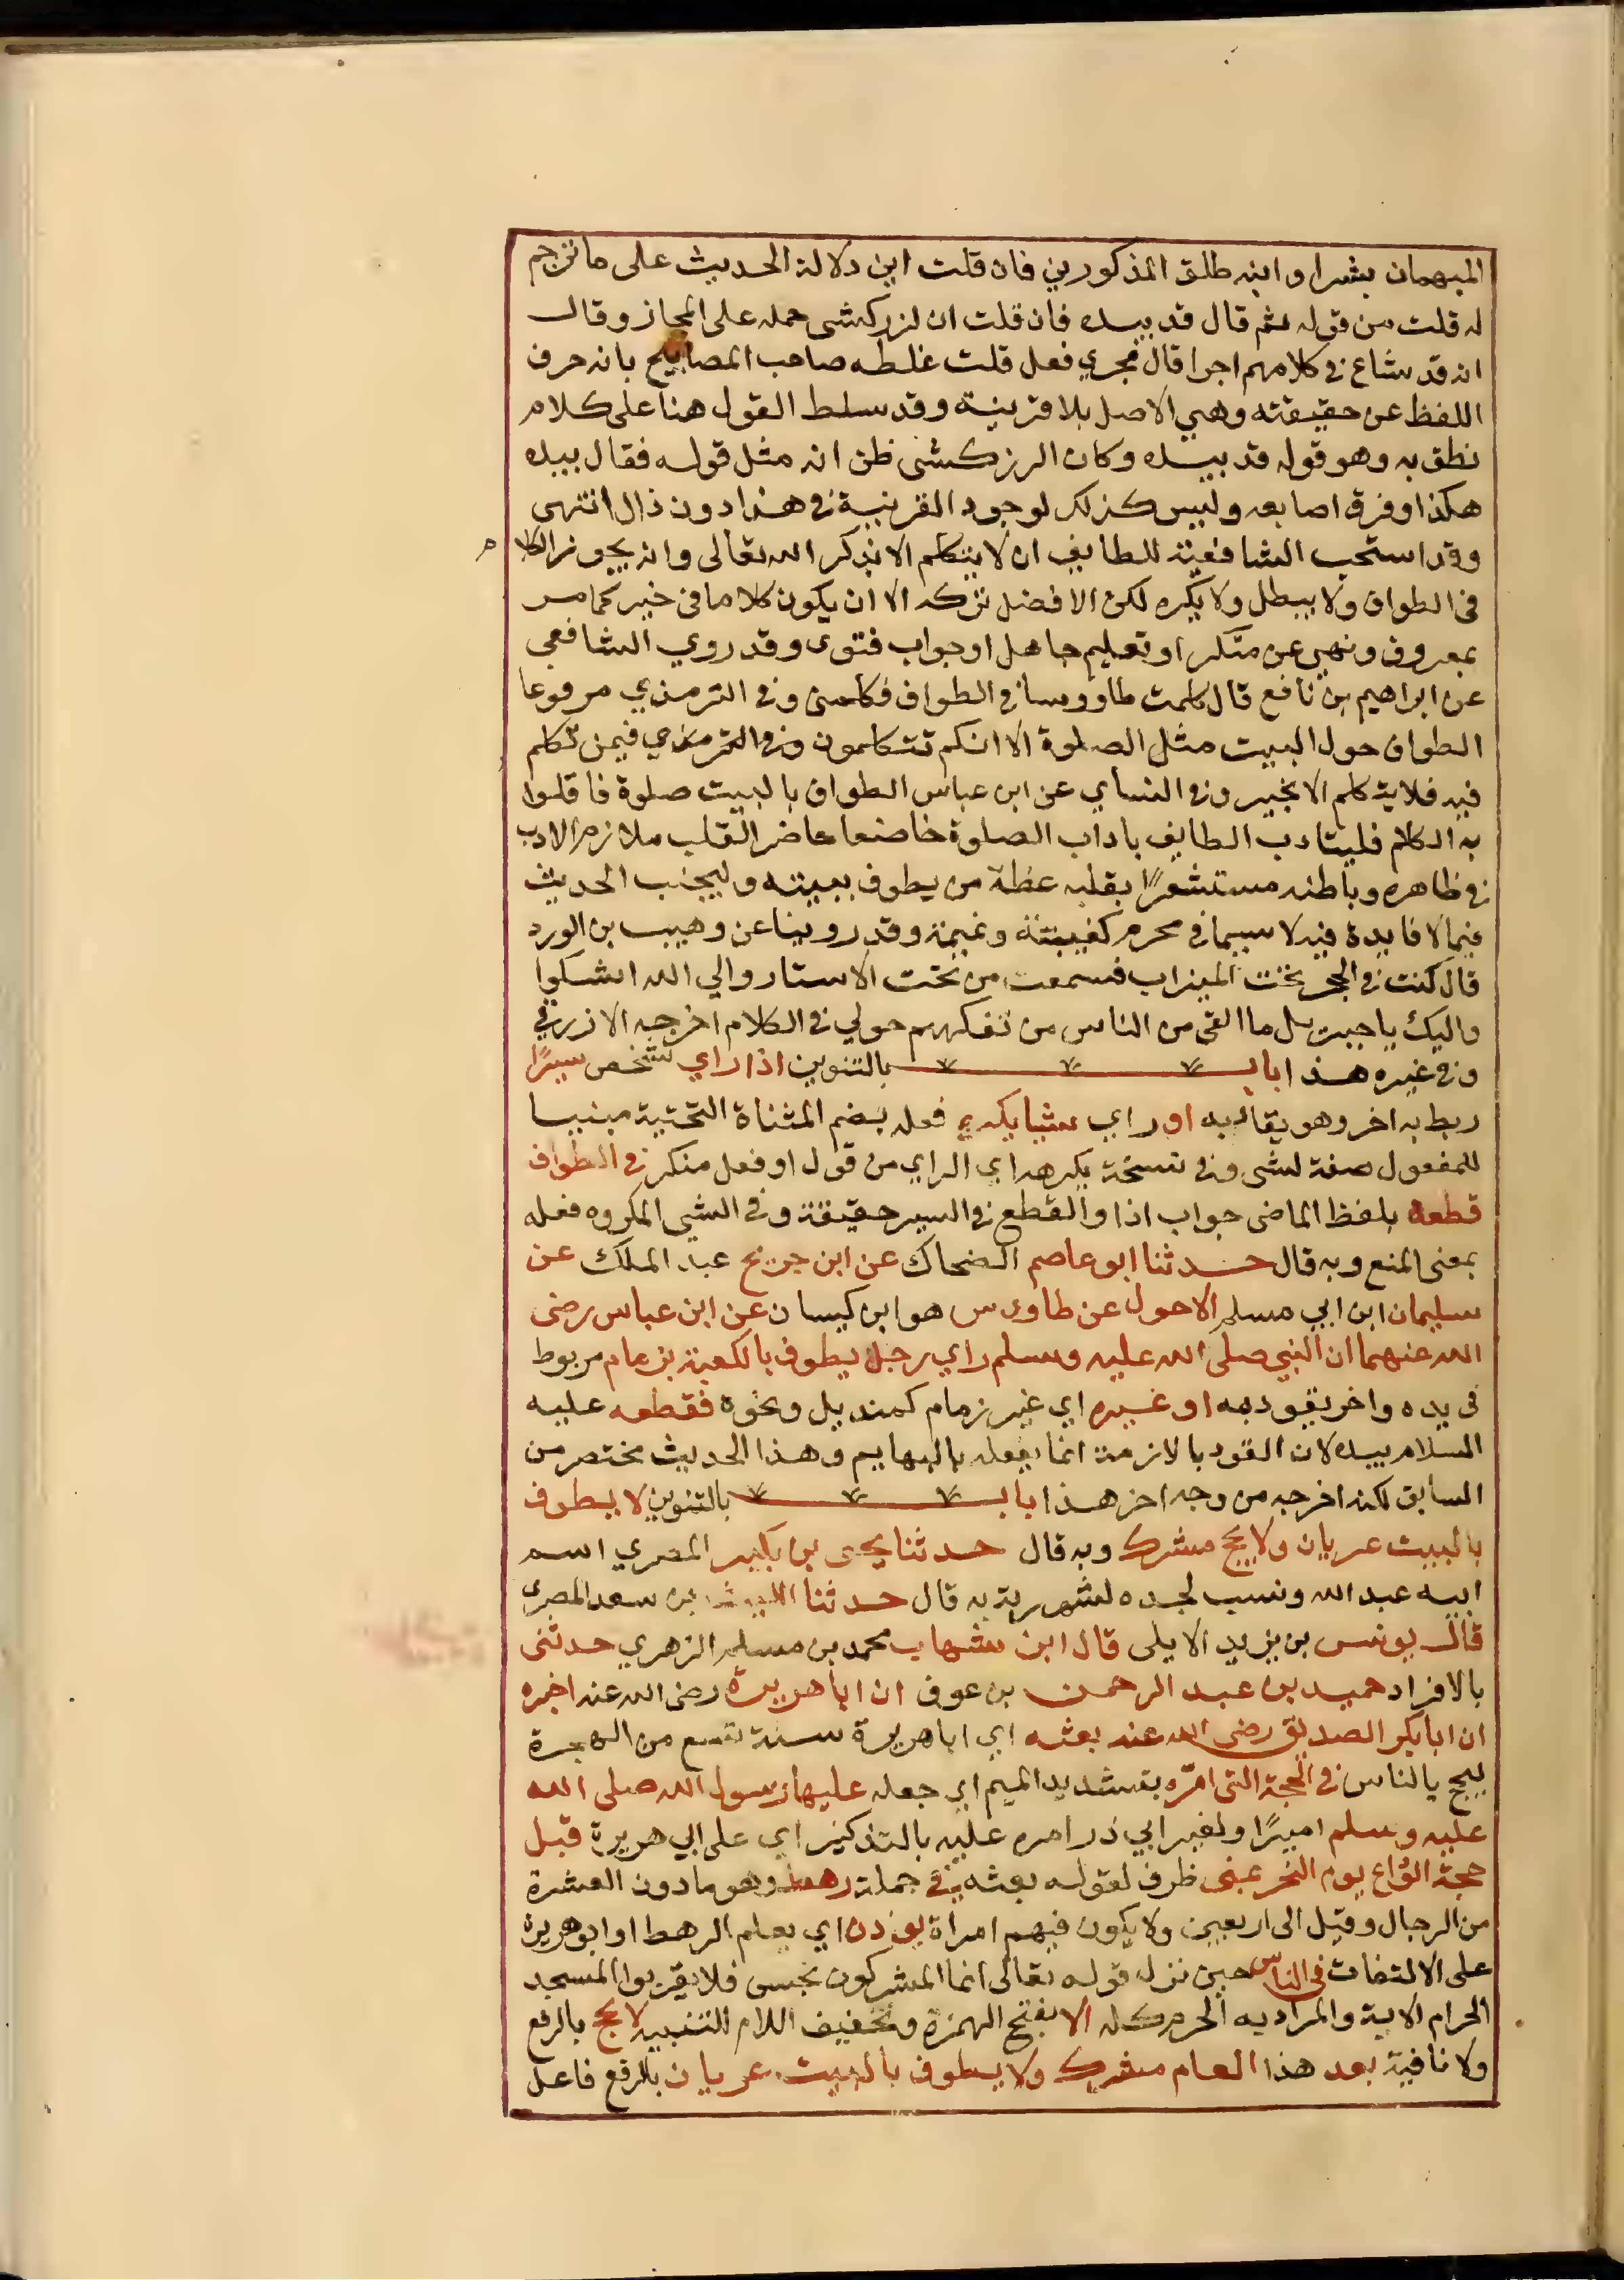 المبهمان بشرا وابنه طلق المذكورين فان قلت اين دلالة الحديث على ما ترجم
له قلت من قوله ثم قال قد بيده فان قلت ان لزركشى حمله على المجاز وقال
انه قد شاع في كلامهم اجرا قال مجري فعل قلت غلطه صاحب المصابيح بانه حرف
اللفظ عن حقيقته وهي الاصل بلا قرينة وقد سلط القول هنا على كلام
نطق به وهو قوله قد بيده وكان الرزكشى ظن انه مثل قوله فقال بيده
هكذا وفرق اصابعه وليس كذلك لوجود القرينية في هذا دون ذال انتهى
وقد استحب الشافعية للطايف ان لا يتكلم الا بذكر الله تعالى وانه يجوز الكلام
فى الطواف ولا يبطل ولا يكره لكن الافضل تركه الا ان يكون كلاما فى خير كامر
بمعروف ونهي عن منكر او تعليم جاهل او جواب فتوى وقد روي الشافعي
عن ابراهيم بن نافع قال كلمت طاووسا في الطواف فكلمنى وفي الترمذي مرفوعا
الطواف حول البيت مثل الصلوة الا انكم تتكلمون وفي الترمذي فيمن تكلم
فيه فلا يتكلم الا بخير وفي النساي عن ابن عباس الطواف بالبيت صلوة فاقلوا
به الكلام فليتادب الطايف باداب الصلوة خاضعا حاضر القلب ملازم الادب
في ظاهره وباطنه مستشعرًا بقلبه عظة من يطوف ببيته وليجنب الحديث
فيما لا فايدة فيه لا سيما في محرم كغيبتة ونميمة وقد روينا عن وهيب بن الورد
قال كنت في الحجر تحت الميزاب فسمعت من تحت الاستار والي الله اشكوا
واليك يا جبريل ما القى من الناس من تفكههم حولي في الكلام اخرجه الازرقي
وفي غيره هذا باب بالتنوين اذا راي شخص سيرًا
ربط به اخر وهو يقاد به او راي شيا يكره فعله بضم المثناة التحتية مبنيا
للمفعول صفة لشى وفي نسخة يكرهه اي الراي من قول او فعل منكر في الطواف
قطعه بلفظ الماضى جواب اذا والقطع في السير حقيقة وفي الشي المكروه فعله
بمعنى المنع وبه قال حدثنا ابو عاصم الضحاك عن ابن جريج عبد الملك عن
سليمان ابن ابي مسلم الاحول عن طاوس هو ابن كيسان عن ابن عباس رضى
الله عنهما ان النبي صلى الله عليه وسلم راي رجل يطوف بالكعبة بزمام مربوط
فى يده واخر يقوده به او غيره اي غير زمام كمنديل ونحوه فقطعه عليه
السلام بيده لان القود بالازمة انما يفعله بالبهايم وهذا الحديث مختصر من
السابق لكنه اخرجه من وجه اخر هذا باب بالتنوين لا يطوف
بالبيت عريان ولا يحج مشرك وبه قال حدثنا يحيى بن بكير المصري اسم
ابيه عبد الله ونسب لجده لشهرته به قال حدثنا الليث بن سعد المصرى
قال يونس بن يزيد الايلى قال ابن شهاب محمد بن مسلم الزهري حدثنى
بالافراد حميد بن عبد الرحمن بن عوف ان ابا هريرة رضى الله عنه اخبره
ان ابا بكر الصديق رضى الله عنه بعثه اي ابا هريرة سنة تسع من الهجرة
ليحج بالناس في الحجة التى امّره بتشديد الميم اي جعله عليها رسول الله صلى الله
عليه وسلم اميرًا ولغير ابي ذر امره عليه بالتذكير اي على ابي هريرة قبل
حجة الوداع يوم النحر بمنى ظرف لقوله بعثه في جملة رهط وهو ما دون العشرة
من الرجال وقيل الى اربعين ولا يكون فيهم امراة يوذن اي يعلم الرهط او ابو هريرة
على الالتفات في الناس حين نزل قوله تعالى انما المشركون نجس فلا يقربوا المسجد
الحرام الاية والمراد به الحرم كله الا بفتح الهمزة وتخفيف اللام للتنبيه لا يحج بالرفع
ولا نافية بعد هذا العام مشرك ولا يطوف بالبيت عريان بالرفع فاعل